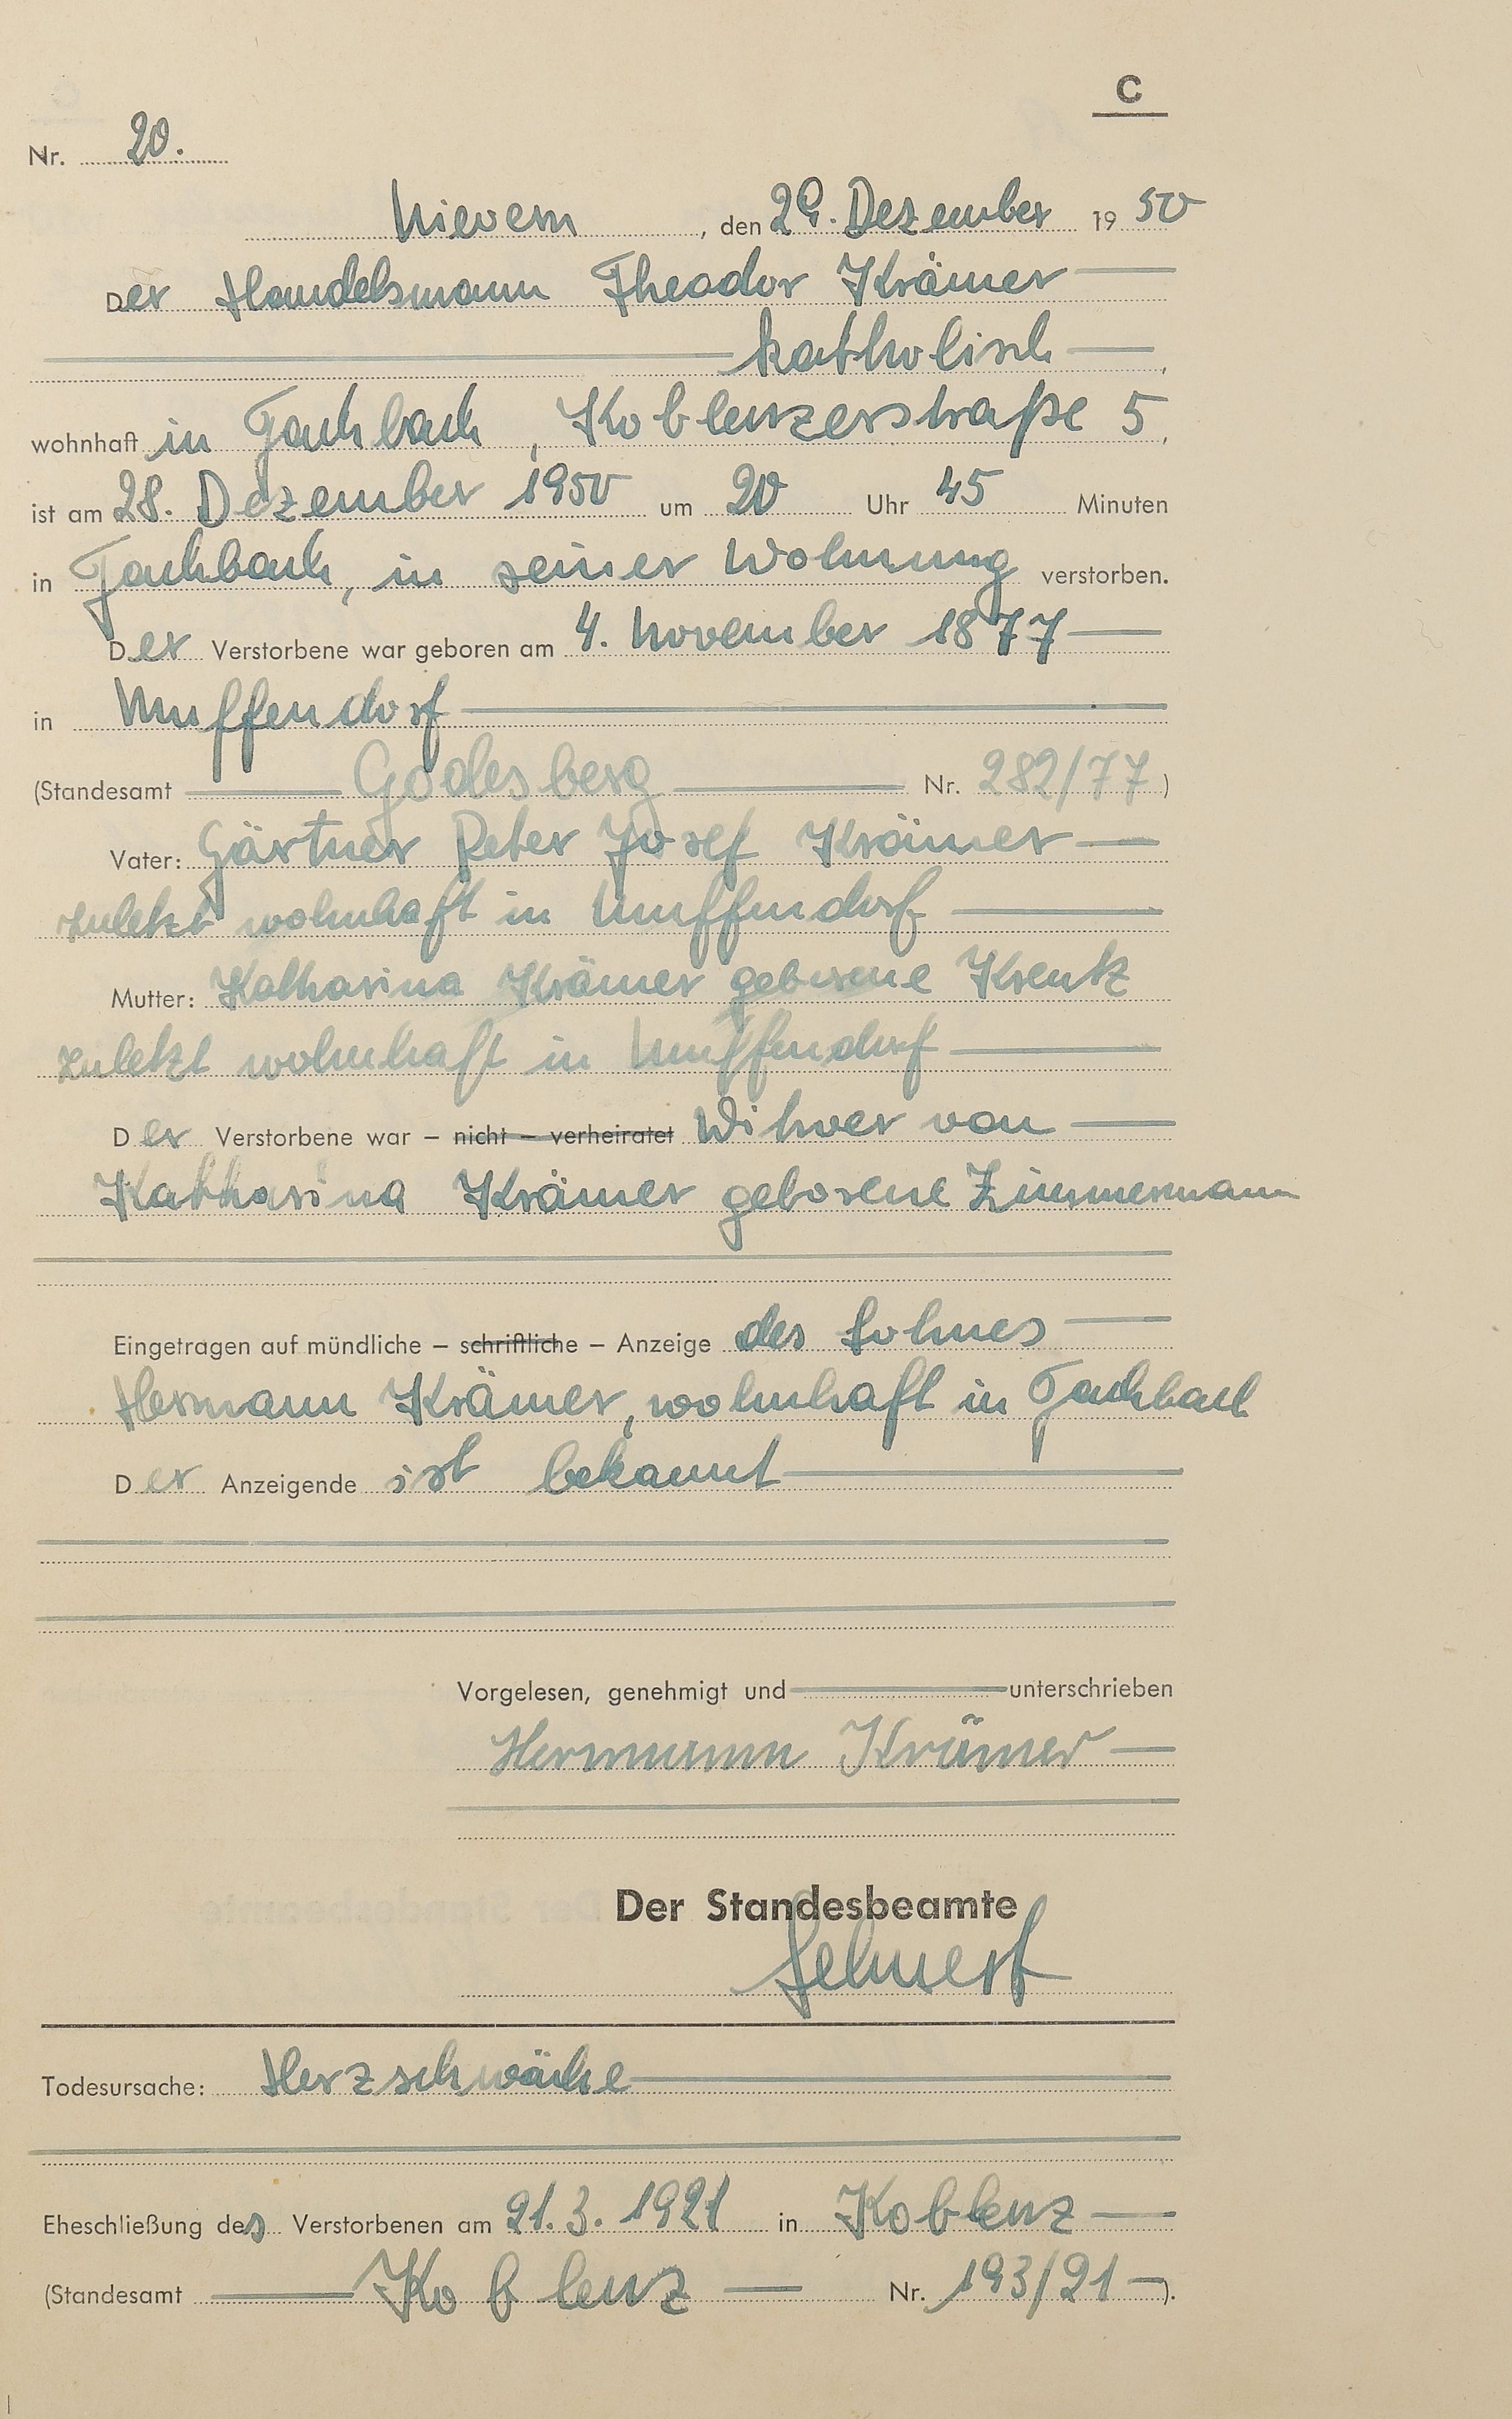 C
Nr. 20.
Nievern, den 29. Dezember 1950
Der Handelsmann Theodor Krämer
katholisch,
wohnhaft in Fachbach, Koblenzerstraße 5,
ist am 28. Dezember 1950 um 20 Uhr 45 Minuten
in Fachbach, in seiner Wohnung verstorben.
Der Verstorbene war geboren am 4. November 1877
in Muffendorf
(Standesamt Godesberg Nr. 282/77)
Vater: Gärtner Peter Josef Krämer
zuletzt wohnhaft in Muffendorf
Mutter: Katharina Krämer geborene Kreutz
zuletzt wohnhaft in Muffendorf
Der Verstorbene war – nicht – verheiratet Witwer von
Katharina Krämer geborene Zimmermann
Eingetragen auf mündliche – schriftliche – Anzeige des Sohnes
Hermann Krämer, wohnhaft in Fachbach
Der Anzeigende ist bekannt
Vorgelesen, genehmigt und unterschrieben
Hermann Krämer
Der Standesbeamte
Todesursache: Herzschwäche
Eheschließung des Verstorbenen am 21.3.1921 in Koblenz
(Standesamt Koblenz Nr. 193/21).